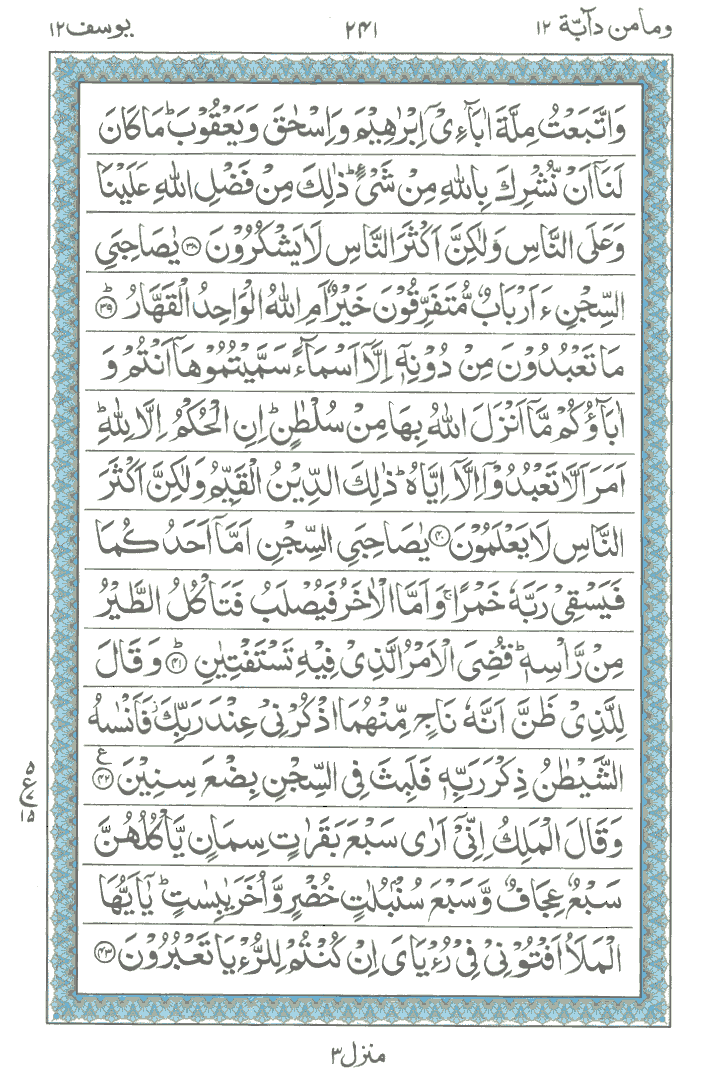 وما من دآبّة ١٢
٢٤١
يوسف ١٢
وَاتَّبَعْتُ مِلَّةَ اٰبَآءِیْۤ اِبْرٰهِیْمَ وَاِسْحٰقَ وَیَعْقُوْبَ ؕ مَا كَانَ
لَنَاۤ اَنْ نُّشْرِكَ بِاللّٰهِ مِنْ شَیْءٍ ؕ ذٰلِكَ مِنْ فَضْلِ اللّٰهِ عَلَیْنَا
وَعَلَی النَّاسِ وَلٰكِنَّ اَكْثَرَ النَّاسِ لَا یَشْكُرُوْنَ ﴿۳۸﴾ یٰصَاحِبَیِ
السِّجْنِ ءَاَرْبَابٌ مُّتَفَرِّقُوْنَ خَیْرٌ اَمِ اللّٰهُ الْوَاحِدُ الْقَهَّارُ ﴿۳۹﴾ؕ
مَا تَعْبُدُوْنَ مِنْ دُوْنِهٖۤ اِلَّاۤ اَسْمَآءً سَمَّیْتُمُوْهَاۤ اَنْتُمْ وَ
اٰبَآؤُكُمْ مَّاۤ اَنْزَلَ اللّٰهُ بِهَا مِنْ سُلْطٰنٍ ؕ اِنِ الْحُكْمُ اِلَّا لِلّٰهِ ؕ
اَمَرَ اَلَّا تَعْبُدُوْۤا اِلَّاۤ اِیَّاهُ ؕ ذٰلِكَ الدِّیْنُ الْقَیِّمُ وَلٰكِنَّ اَكْثَرَ
النَّاسِ لَا یَعْلَمُوْنَ ﴿۴۰﴾ یٰصَاحِبَیِ السِّجْنِ اَمَّاۤ اَحَدُكُمَا
فَیَسْقِیْ رَبَّهٗ خَمْرًا ۚ وَاَمَّا الْاٰخَرُ فَیُصْلَبُ فَتَاْكُلُ الطَّیْرُ
مِنْ رَّاْسِهٖ ؕ قُضِیَ الْاَمْرُ الَّذِیْ فِیْهِ تَسْتَفْتِیٰنِ ﴿۴۱﴾ؕ وَقَالَ
لِلَّذِیْ ظَنَّ اَنَّهٗ نَاجٍ مِّنْهُمَا اذْكُرْنِیْ عِنْدَ رَبِّكَ ؗ فَاَنْسٰىهُ
الشَّیْطٰنُ ذِكْرَ رَبِّهٖ فَلَبِثَ فِی السِّجْنِ بِضْعَ سِنِیْنَ ﴿۴۲﴾ ع
٥ ع ٧ ١٥
وَقَالَ الْمَلِكُ اِنِّیْۤ اَرٰی سَبْعَ بَقَرٰتٍ سِمَانٍ یَّاْكُلُهُنَّ
سَبْعٌ عِجَافٌ وَّسَبْعَ سُنْۢبُلٰتٍ خُضْرٍ وَّاُخَرَ یٰبِسٰتٍ ؕ یٰۤاَیُّهَا
الْمَلَاُ اَفْتُوْنِیْ فِیْ رُءْیَایَ اِنْ كُنْتُمْ لِلرُّءْیَا تَعْبُرُوْنَ ﴿۴۳﴾
منزل ٣